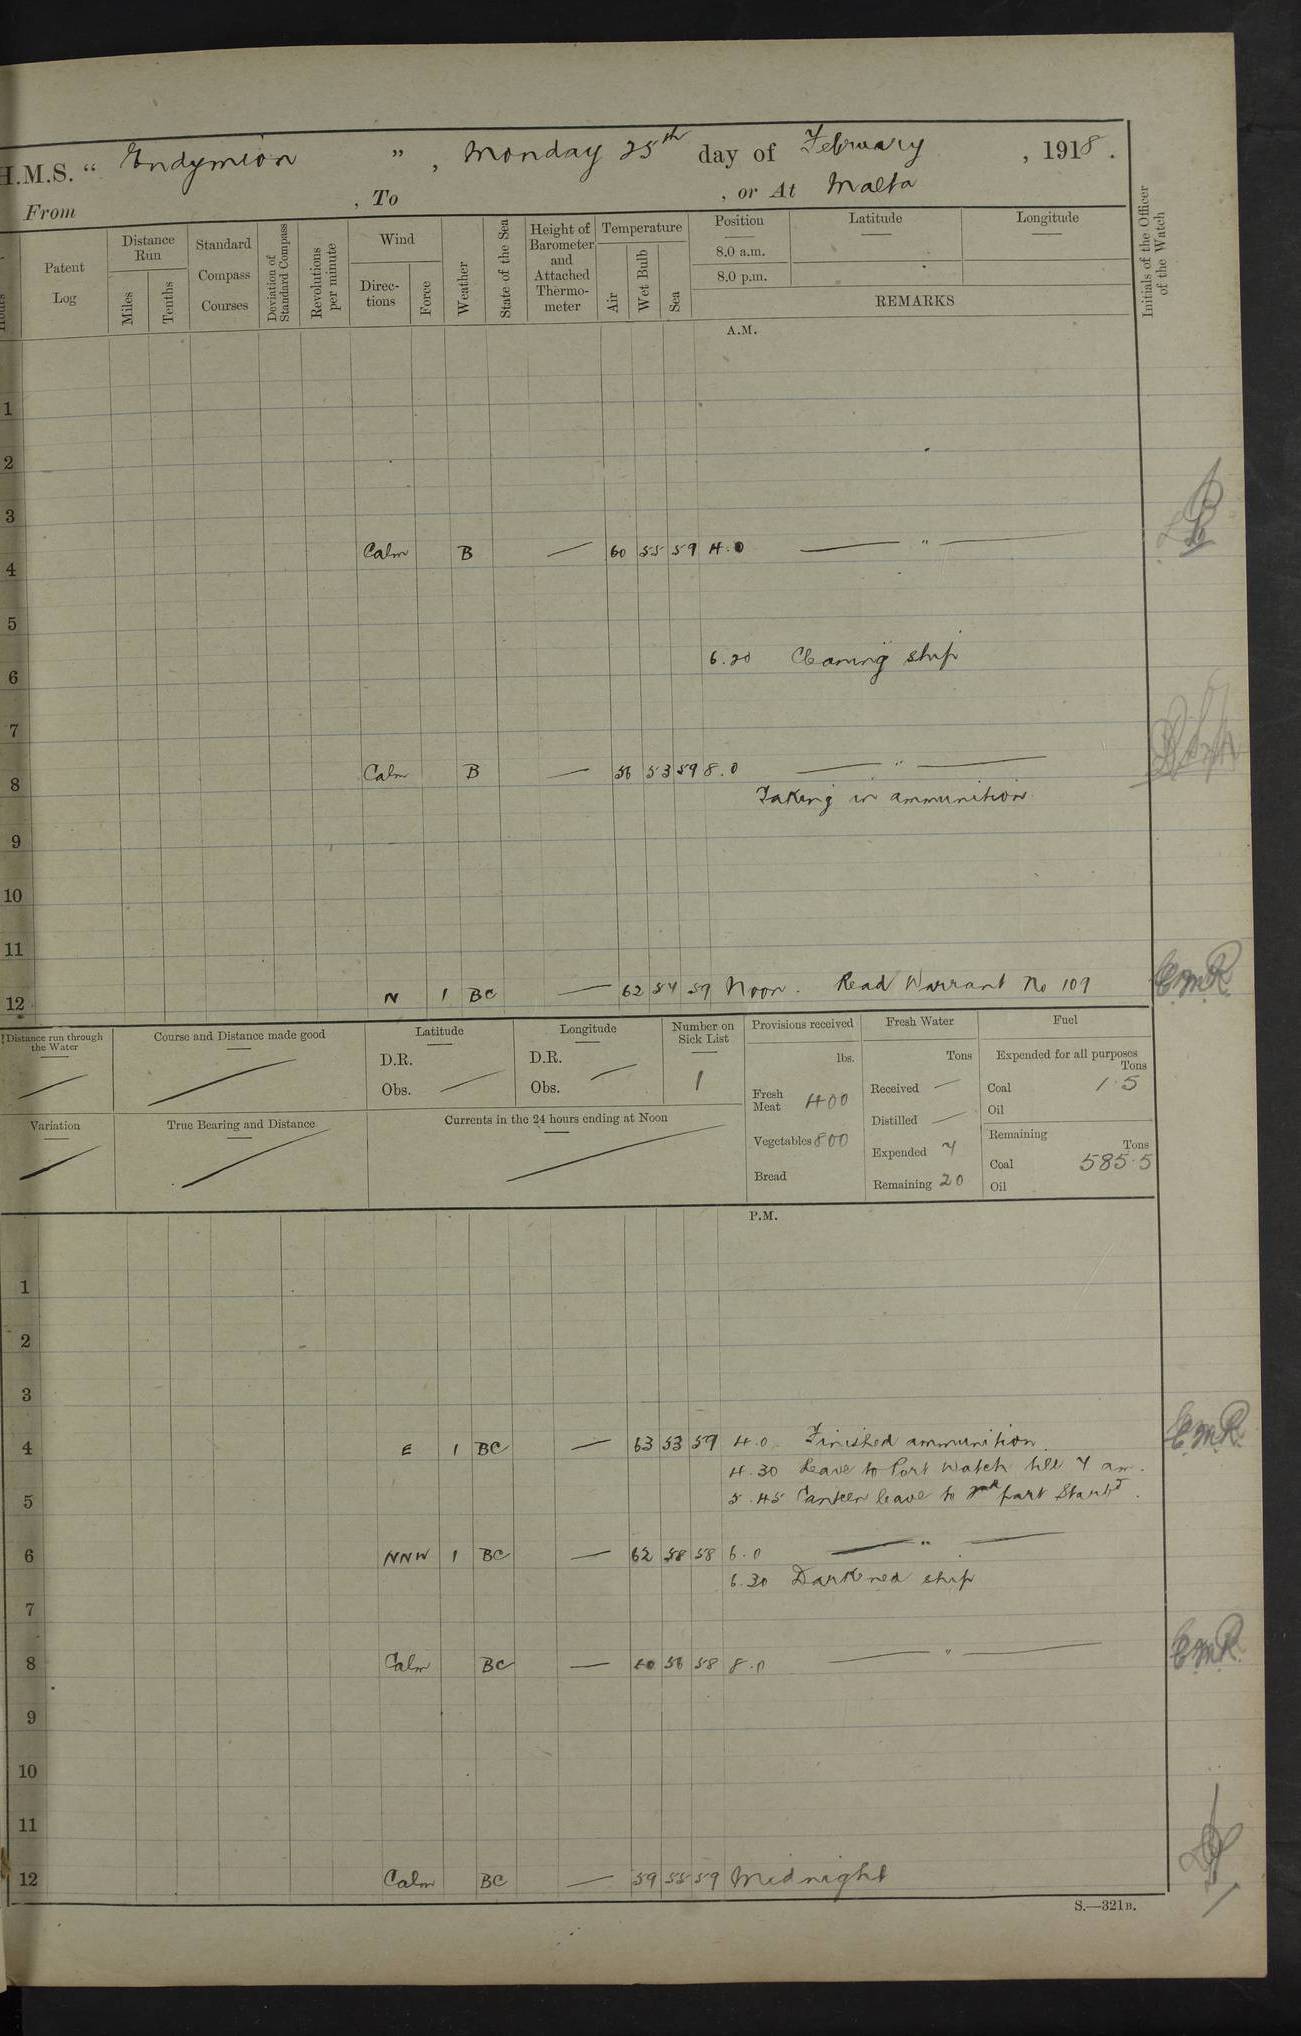 H.M.S. “ Endymion ” , Monday 25th day of February , 1918 .
From , To , or At Malta
Hours
Patent Log
Distance Run
Miles
Tenths
Standard Compass Courses
Deviation of Standard Compass
Revolutions per minute
Wind
Direc-tions
Force
Weather
State of the Sea
Height of Barometer and Attached Thermo-meter
Temperature
Air
Wet Bulb
Sea
Position
Latitude
Longitude
8.0 a.m.
8.0 p.m.
REMARKS
Initials of the Officer of the Watch
A.M.
1
2
3
4 Calm B — 60 55 59 4.0 — " —
5
6 6.20 Cleaning ship
7
8 Calm B — 56 53 59 8.0 — " —
Taking in ammunition
9
10
11
12 N 1 BC — 62 54 59 Noon. Read Warrant No 109 E.M.R.
Distance run through the Water
Course and Distance made good
Latitude
D.R.
Obs.
Longitude
D.R.
Obs.
Number on Sick List
1
Provisions received
lbs.
Fresh Meat 400
Vegetables 800
Bread
Fresh Water
Tons
Received —
Distilled —
Expended 7
Remaining 20
Fuel
Expended for all purposes
Tons
Coal 1.5
Oil
Remaining
Tons
Coal 585.5
Oil
Variation
True Bearing and Distance
Currents in the 24 hours ending at Noon
P.M.
1
2
3
4 E 1 BC — 63 53 59 4.0 Finished ammunition. E.M.R.
4.30 Leave to Port Watch till 7 am.
5 5.45 Canteen leave to 2nd part Starbd.
6 NNW 1 BC — 62 58 58 6.0 — " —
6.30 Darkened ship
7
8 Calm BC — 60 56 58 8.0 — " — E.M.R.
9
10
11
12 Calm BC — 59 55 59 Midnight
S.—321B.